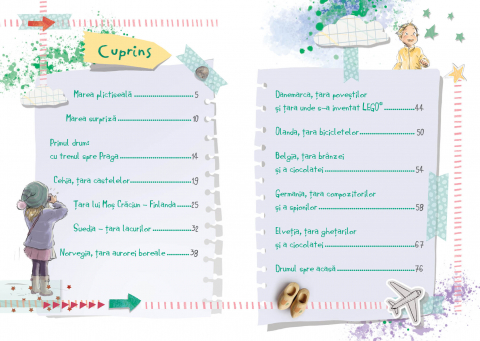 Cuprins
Marea plictiseală 5
Marea surpriză 10
Primul drum:
cu trenul spre Praga 14
Cehia, țara castelelor 19
Țara lui Moș Crăciun – Finlanda 25
Suedia – țara lacurilor 32
Norvegia, țara aurorei boreale 38
Danemarca, țara poveștilor
și țara unde s-a inventat LEGO® 44
Olanda, țara bicicletelor 50
Belgia, țara brânzei
și a ciocolatei 54
Germania, țara compozitorilor
și a spionilor 58
Elveția, țara ghețarilor
și a ciocolatei 67
Drumul spre acasă 76